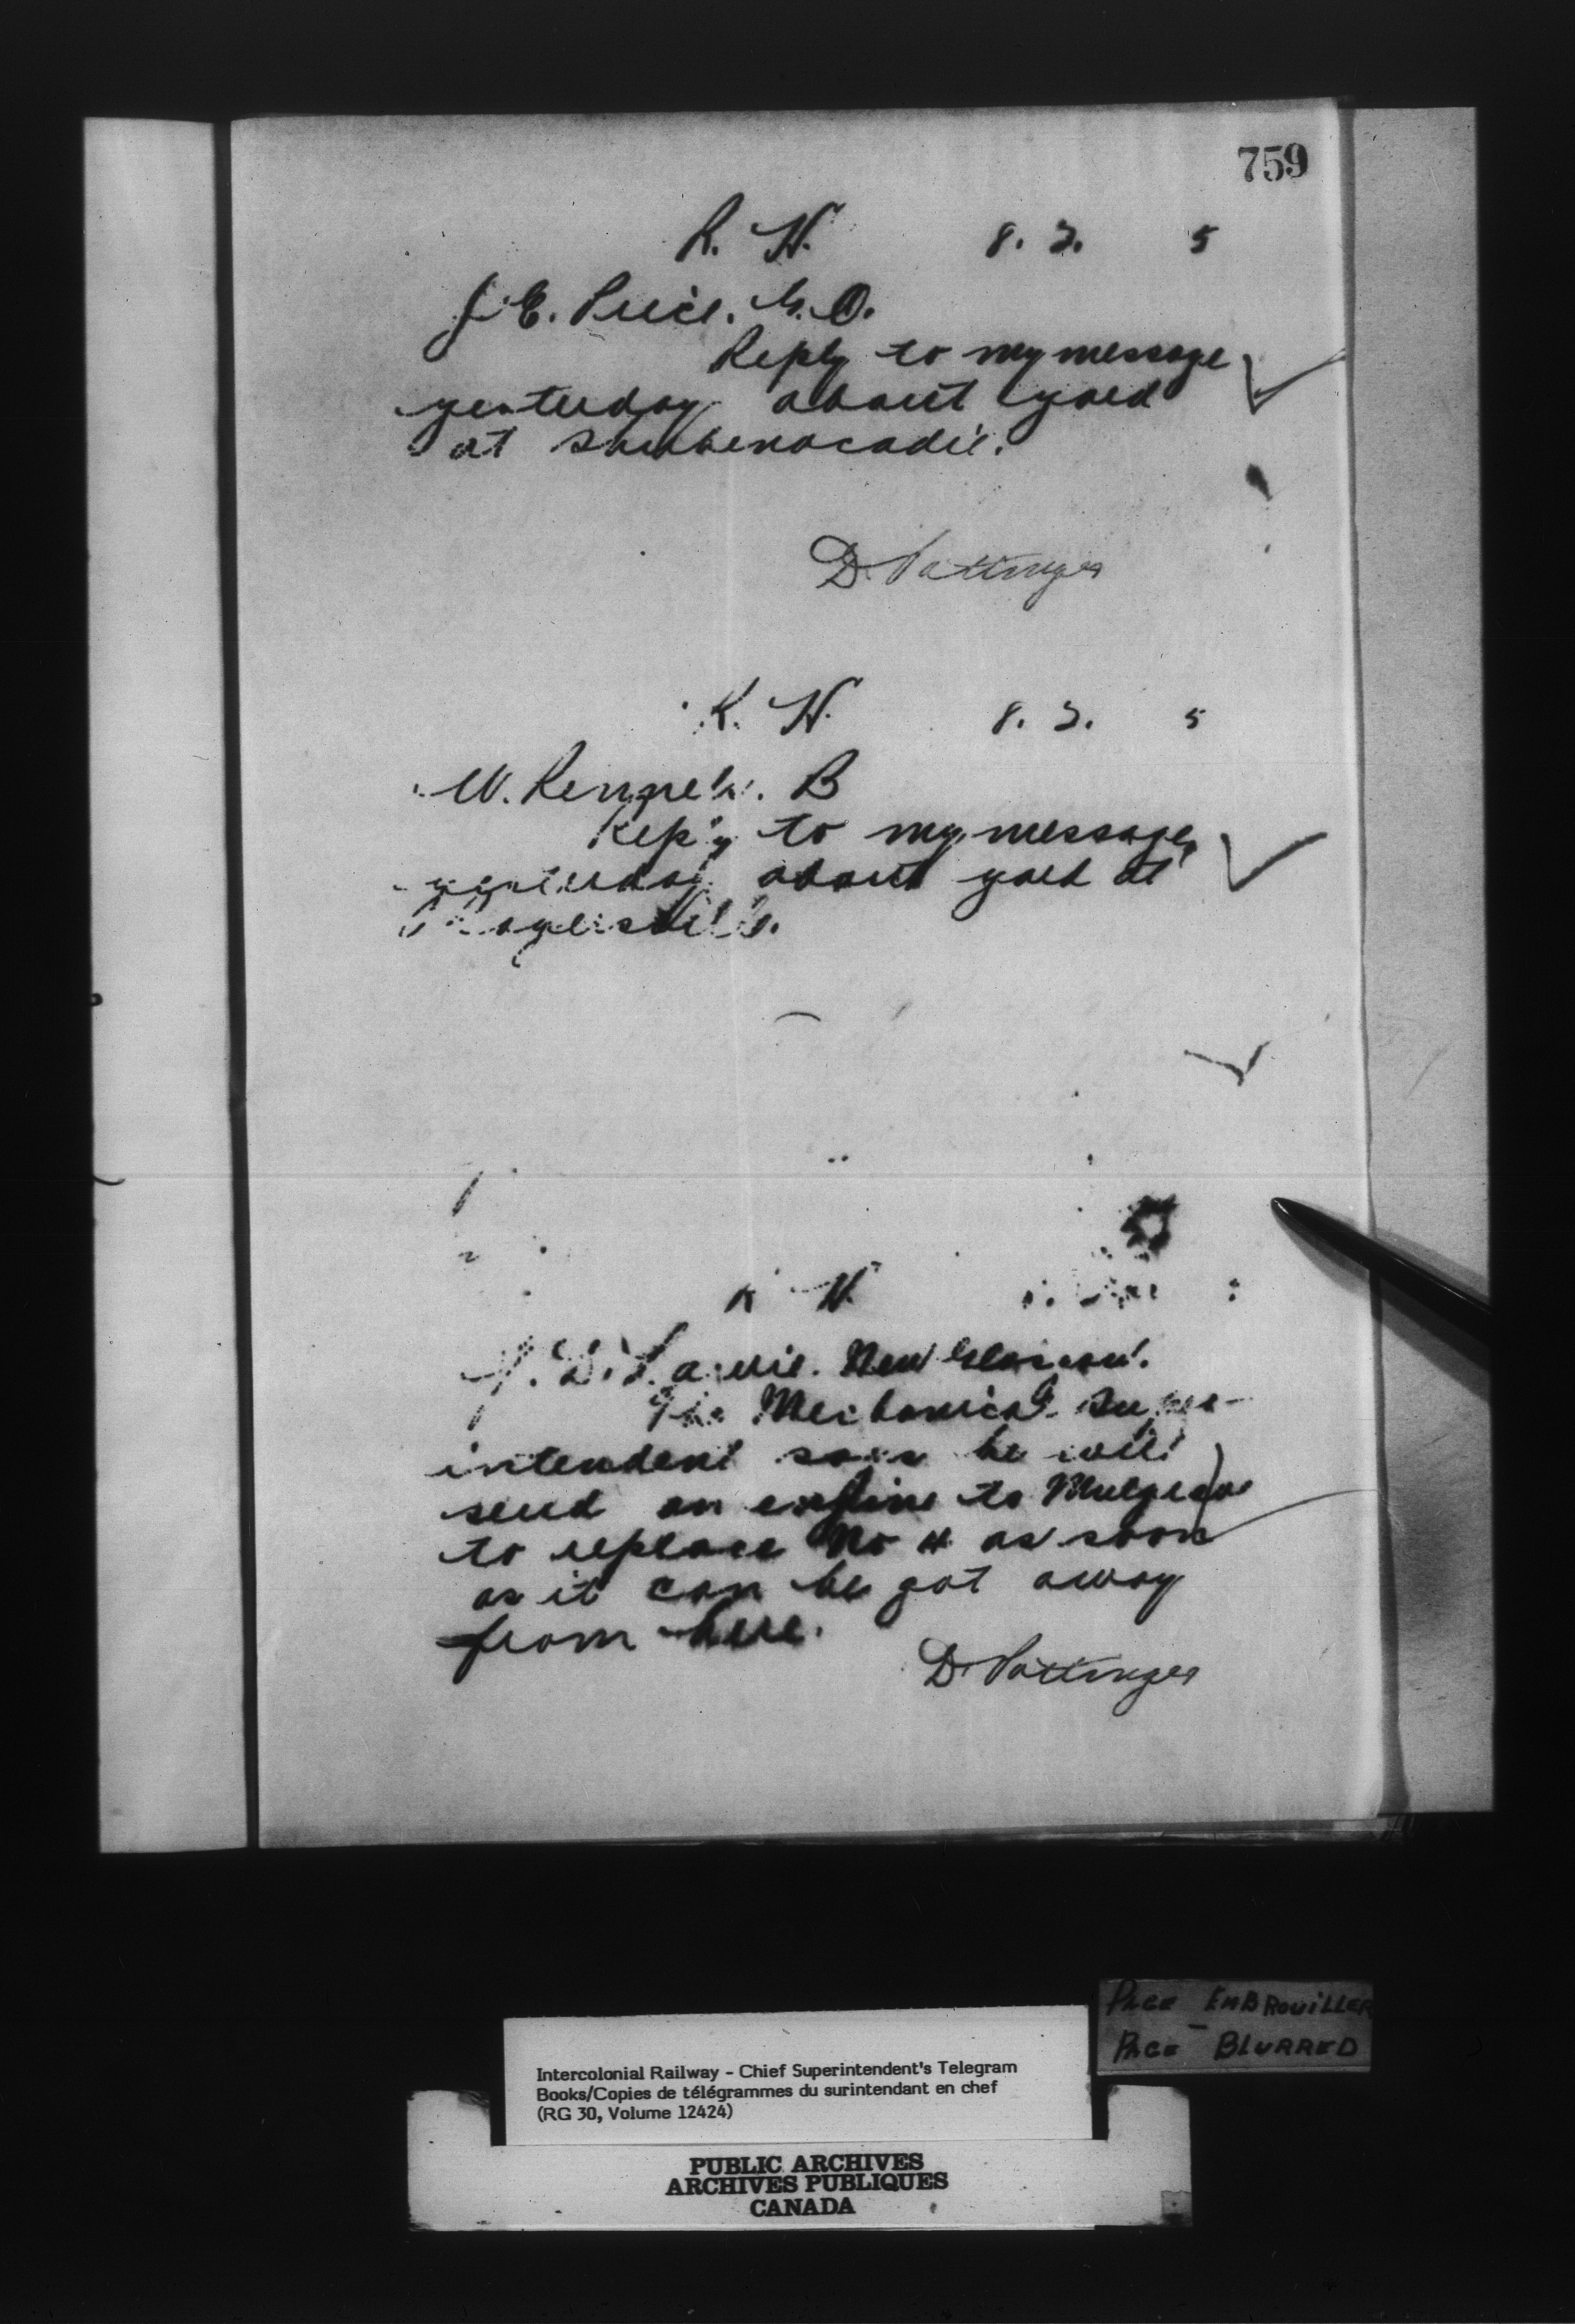 759
R. H. 8. 3. 5
J. E. Price. G. O.
Reply to my message
yesterday about yard
at Shubenacadie.
D. Pottinger
K. H. 8. 3. 5
W. Rennels. B
Reply to my message
yesterday about yard at
K H.
New Glasgow.
The Mechanical Super-
intendent says he will
send an engine to Mulgrave
to replace No as soon
as it can be got away
from here.
D. Pottinger
PAGE EMBROUILLER
PAGE - BLURRED
Intercolonial Railway - Chief Superintendent's Telegram
Books/Copies de télégrammes du surintendant en chef
(RG 30, Volume 12424)
PUBLIC ARCHIVES
ARCHIVES PUBLIQUES
CANADA